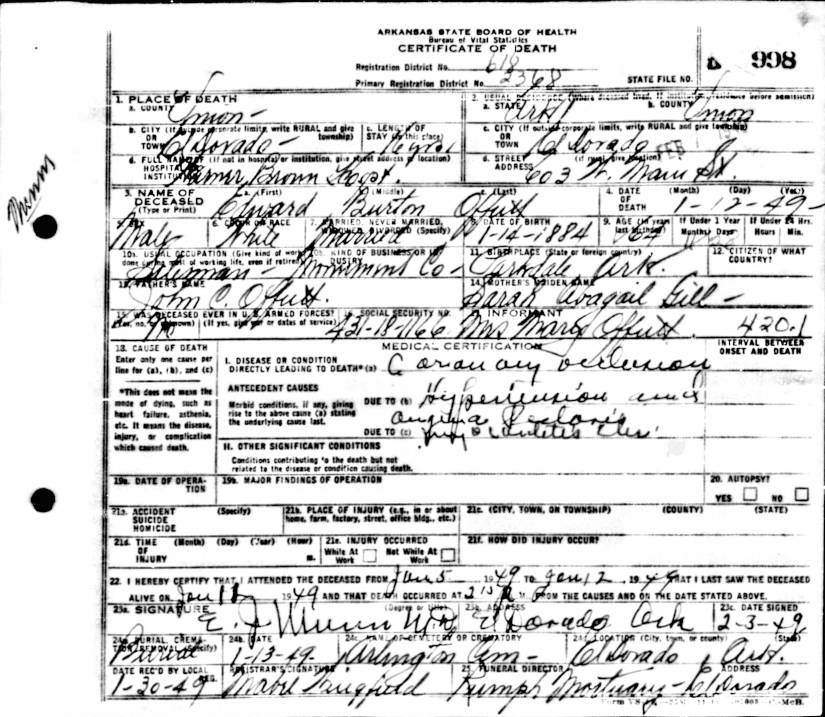 ARKANSAS STATE BOARD OF HEALTH
Bureau of Vital Statistics
CERTIFICATE OF DEATH
Registration District No. 618
Primary Registration District No. 2368 STATE FILE NO. 998
Munns
1. PLACE OF DEATH
a. COUNTY Union
a. STATE Ark b. COUNTY Union
b. CITY (If outside corporate limits, write RURAL and give township) OR TOWN El Dorado c. LENGTH OF STAY (in this place)
c. CITY (If outside corporate limits, write RURAL and give township) OR TOWN El Dorado
FEB
d. FULL NAME OF (If not in hospital or institution, give street address or location) INSTITUTION Warner Brown Hospt.
d. STREET ADDRESS (if rural, give location) 603 W. Main St.
3. NAME OF DECEASED (Type or Print) a. (First) Edward (Middle) Burton c. (Last) Offutt
4. DATE OF DEATH (Month) (Day) (Year) 1-12-49
Male 6. COLOR OR RACE White 7. MARRIED, NEVER MARRIED, WIDOWED, DIVORCED (Specify) Married 8. DATE OF BIRTH 1-14-1884 9. AGE (In years last birthday) 64 If Under 1 Year Months Days If Under 24 Hrs. Hours Min.
10a. USUAL OCCUPATION (Give kind of work done during most of working life, even if retired) Salesman 10b. KIND OF BUSINESS OR INDUSTRY Co 11. BIRTHPLACE (State or foreign country) Parkdale Ark. 12. CITIZEN OF WHAT COUNTRY?
13. FATHER'S NAME John C. Offutt. 14. MOTHER'S MAIDEN NAME Sarah Avagail Gill
15. WAS DECEASED EVER IN U. S. ARMED FORCES? (Yes, no, or unknown) (If yes, give war or dates of service) No 16. SOCIAL SECURITY NO. 17. INFORMANT Mrs Mary Offutt. 420.1
18. CAUSE OF DEATH
Enter only one cause per line for (a), (b), and (c)
MEDICAL CERTIFICATION
INTERVAL BETWEEN ONSET AND DEATH
I. DISEASE OR CONDITION DIRECTLY LEADING TO DEATH* (a) Coronary occlusion
*This does not mean the mode of dying, such as heart failure, asthenia, etc. It means the disease, injury, or complication which caused death.
ANTECEDENT CAUSES
Morbid conditions, if any, giving rise to the above cause (a) stating the underlying cause last.
DUE TO (b) Hypertension and
Angina Pectoris
DUE TO (c)
II. OTHER SIGNIFICANT CONDITIONS
Conditions contributing to the death but not related to the disease or condition causing death.
19a. DATE OF OPERATION 19b. MAJOR FINDINGS OF OPERATION 20. AUTOPSY? YES NO
21a. ACCIDENT SUICIDE HOMICIDE (Specify) 21b. PLACE OF INJURY (e.g., in or about home, farm, factory, street, office bldg., etc.) 21c. (CITY, TOWN, OR TOWNSHIP) (COUNTY) (STATE)
21d. TIME OF INJURY (Month) (Day) (Year) (Hour) m. 21e. INJURY OCCURRED While At Work Not While At Work 21f. HOW DID INJURY OCCUR?
22. I HEREBY CERTIFY THAT I ATTENDED THE DECEASED FROM Jan 5 1949 TO Jan 12 1949 THAT I LAST SAW THE DECEASED
ALIVE ON Jan 1949 AND THAT DEATH OCCURRED AT M. FROM THE CAUSES AND ON THE DATE STATED ABOVE.
23a. SIGNATURE (Degree or title) E. J. Munn M.D. 23b. ADDRESS El Dorado Ark 23c. DATE SIGNED 2-3-49
24a. BURIAL, CREMATION, REMOVAL (Specify) Burial 24b. DATE 1-13-49 24c. NAME OF CEMETERY OR CREMATORY Arlington Cem 24d. LOCATION (City, town, or county) (State) El Dorado Ark.
DATE REC'D BY LOCAL REG. 1-30-49 REGISTRAR'S SIGNATURE Mabel Wingfield 25. FUNERAL DIRECTOR ADDRESS Rumph Mortuary El Dorado